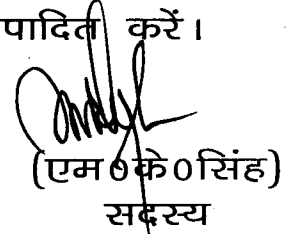 पादित करें।
(एम०के०सिंह)
सदस्य